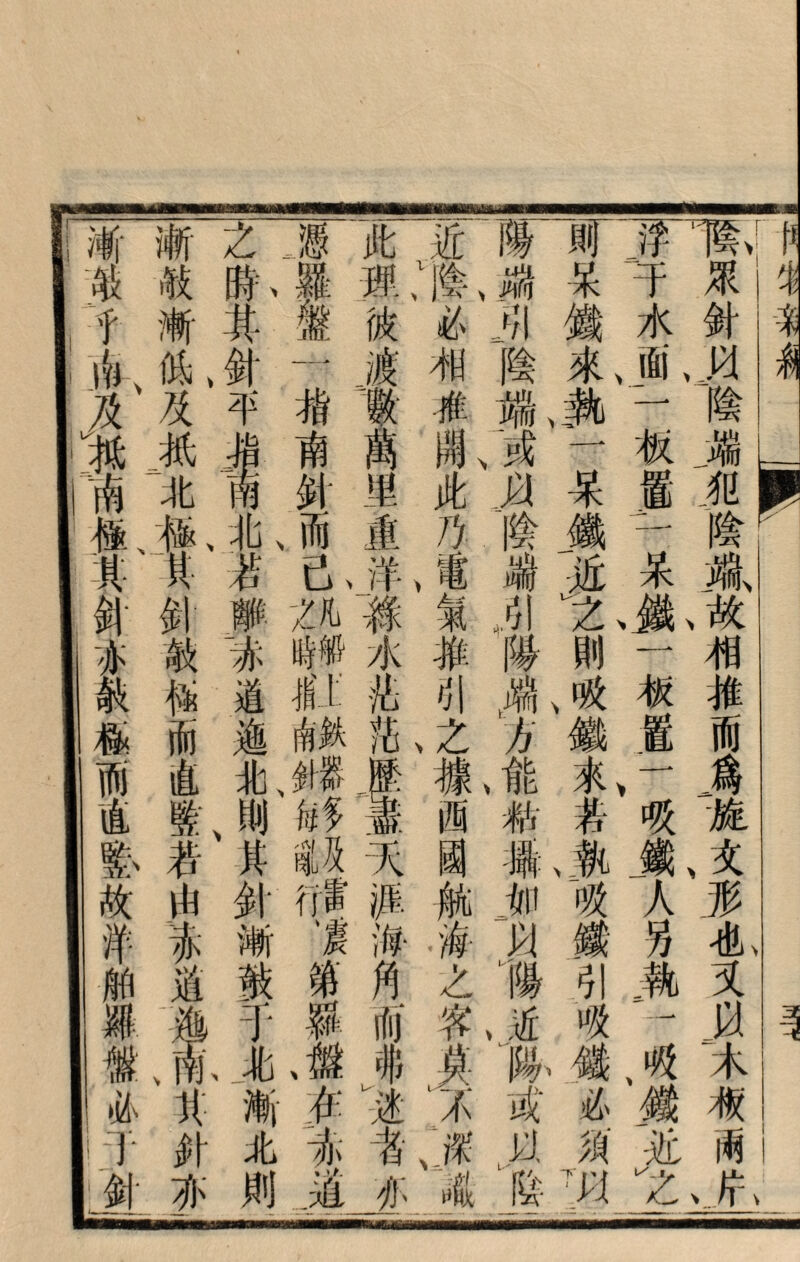 博物新編
陰、眾針以陰端犯陰端、故相推而爲旋文形也、又以木板兩片、
浮于水面、一板置一呆鐵、一板置一吸鐵、人另執一吸鐵近之、
則呆鐵來、執一呆鐵近之、則吸鐵來、若執吸鐵引吸鐵、必須以
陽端引陰端、或以陰端引陽端、方能粘攝、如以陽近陽、或以陰
近陰、必相推開、此乃電氣推引之據、西國航海之客、莫不深識
此理、彼渡數萬里重洋、綠水茫茫、歷盡天涯海角而弗迷者、亦
憑羅盤一指南針而已、凡船上鉄器多及雷震之時、指南針每亂行、第羅盤在赤道
之時、其針平指南北、若離赤道迤北、則其針漸敧于北、漸北則
漸敧漸低、及抵北極、其針敧極而直竪、若由赤道迤南、其針亦
漸敧乎南、及抵南極、其針亦敧極而直竪、故洋舶羅盤、必于針